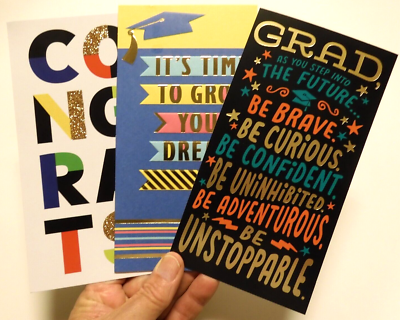 CO
NG
RA
TS
IT'S TIM
TO GRO
YOU
DRE
GRAD,
AS YOU STEP INTO
THE FUTURE...
BE BRAVE.
BE CURIOUS.
BE CONFIDENT.
BE UNINHIBITED.
BE ADVENTUROUS.
BE
UNSTOPPABLE.